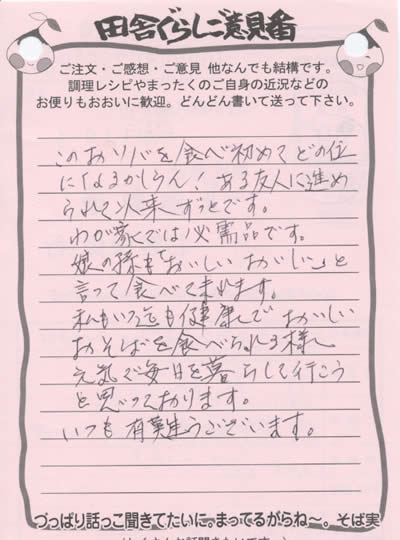 田舎ぐらしご意見番
ご注文・ご感想・ご意見 他なんでも結構です。
調理レシピやまったくのご自身の近況などの
お便りもおおいに歓迎。どんどん書いて送って下さい。
このおソバを食べ初めてどの位
になるかしらん！ある友人に進め
られて以来ずっとです。
わが家では必需品です。
娘の孫も「おいしいおいしい」と
言って食べて来れます。
私もいつ迄も健康でおいしい
おそばを食べられる様
元気で毎日を暮らして行こう
と思っております。
いつも有難うございます。
づっぱり話っこ聞きてたいに。まってるがらね〜。そば実